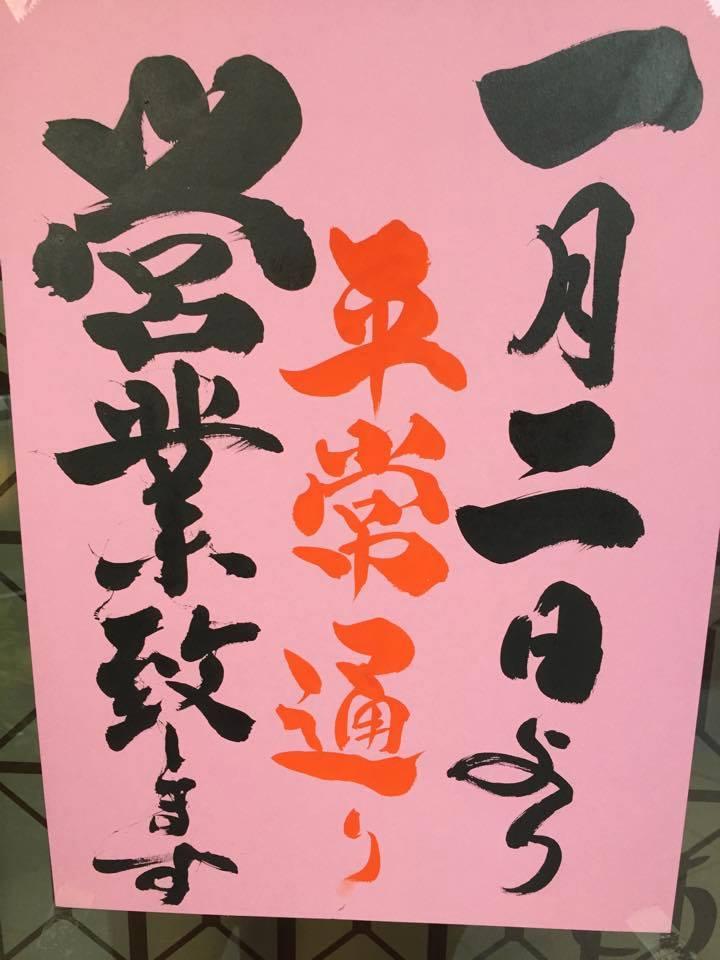 一月二日より
平常通り
営業致します